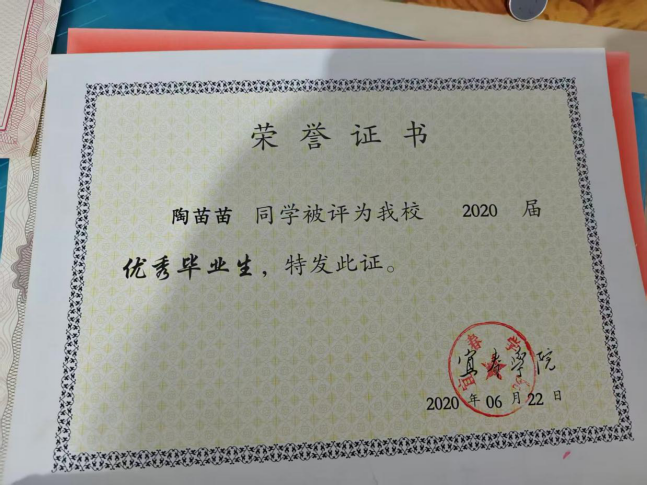 荣誉证书
陶苗苗 同学被评为我校 2020 届
优秀毕业生，特发此证。
宜春学院
2020 年 06 月 22 日